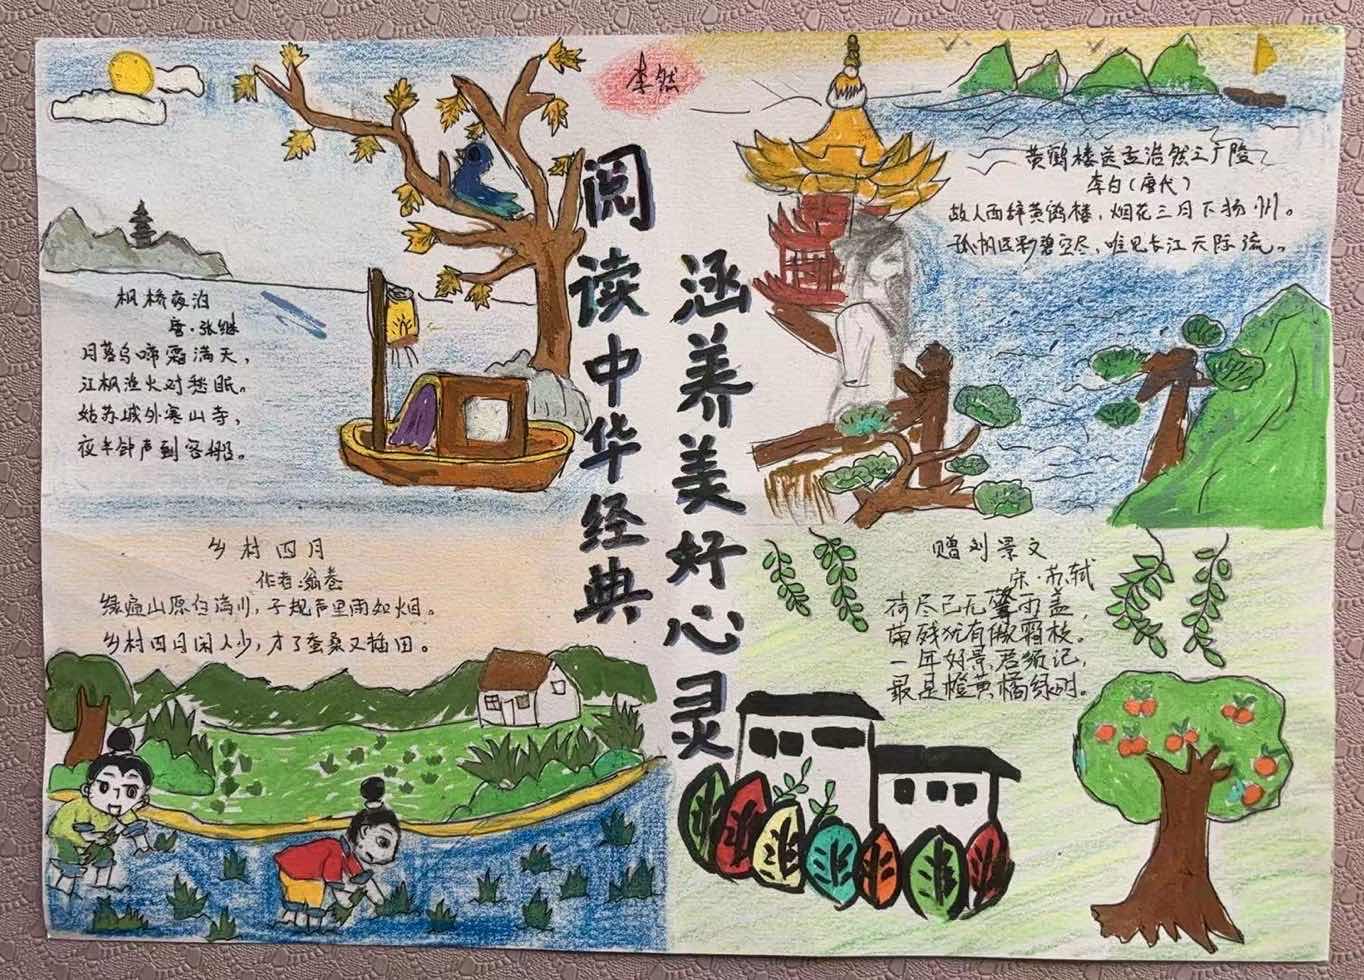 李然
阅读中华经典
涵养美好心灵
枫桥夜泊
唐·张继
月落乌啼霜满天，
江枫渔火对愁眠。
姑苏城外寒山寺，
夜半钟声到客船。
黄鹤楼送孟浩然之广陵
李白（唐代）
故人西辞黄鹤楼，烟花三月下扬州。
孤帆远影碧空尽，唯见长江天际流。
乡村四月
作者：翁卷
绿遍山原白满川，子规声里雨如烟。
乡村四月闲人少，才了蚕桑又插田。
赠刘景文
宋·苏轼
荷尽已无擎雨盖，
菊残犹有傲霜枝。
一年好景君须记，
最是橙黄橘绿时。